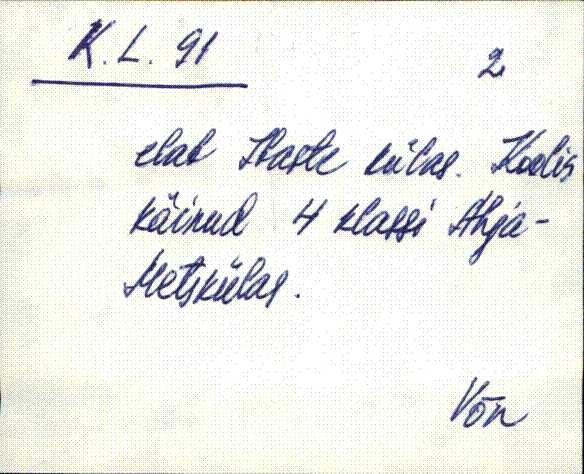 K. L. 91
2
elab Ibaste külas. Koolis
käinud 4 klassi Ahja-
Metskülas.
Võn